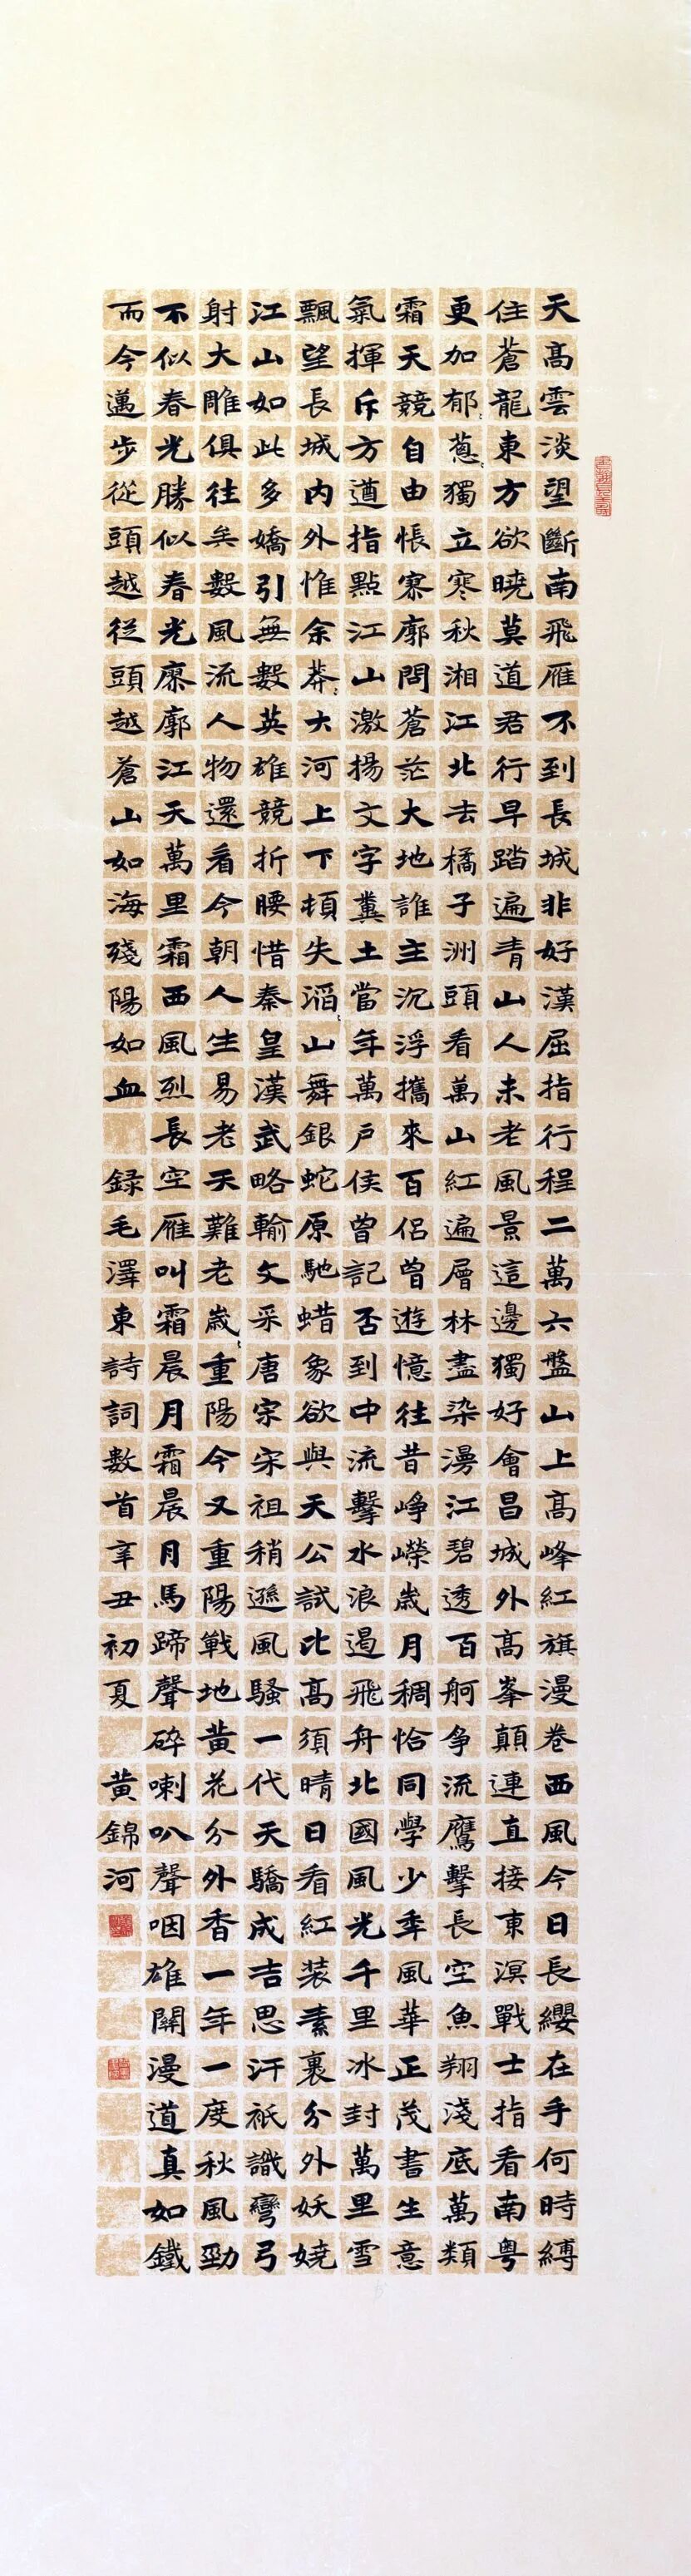 天高雲淡望斷南飛雁不到長城非好漢屈指行程二萬六盤山上高峰紅旗漫卷西風今日長纓在手何時縛
住蒼龍東方欲曉莫道君行早踏遍青山人未老風景這邊獨好會昌城外高峯顛連直接東溟戰士指看南粵
更加郁〻蔥〻獨立寒秋湘江北去橘子洲頭看萬山紅遍層林盡染漫江碧透百舸争流鷹擊長空魚翔淺底萬類
霜天競自由悵寥廓問蒼茫大地誰主沉浮攜來百侶曾遊憶往昔崢嶸崴月稠恰同學少年風華正茂書生意
氣揮斥方遒指點江山激揚文字糞土當年萬戶侯曾記否到中流擊水浪遏飛舟北國風光千里冰封萬里雪
飄望長城内外惟余莽〻大河上下頓失滔〻山舞銀蛇原馳蜡象欲與天公試比高須晴日看紅装素裹分外妖嬈
江山如此多嬌引無數英雄競折腰惜秦皇漢武略輸文采唐宗宋祖稍遜風騷一代天驕成吉思汗祇識彎弓
射大雕俱往矣數風流人物還看今朝人生易老天難老崴〻重陽今又重陽戰地黄花分外香一年一度秋風勁
不似春光勝似春光廖廓江天萬里霜西風烈長空雁叫霜晨月霜晨月馬蹄聲碎喇叭聲咽雄關漫道真如鐵
而今邁步從頭越從頭越蒼山如海殘陽如血 録毛澤東詩詞數首辛丑初夏 黄錦河